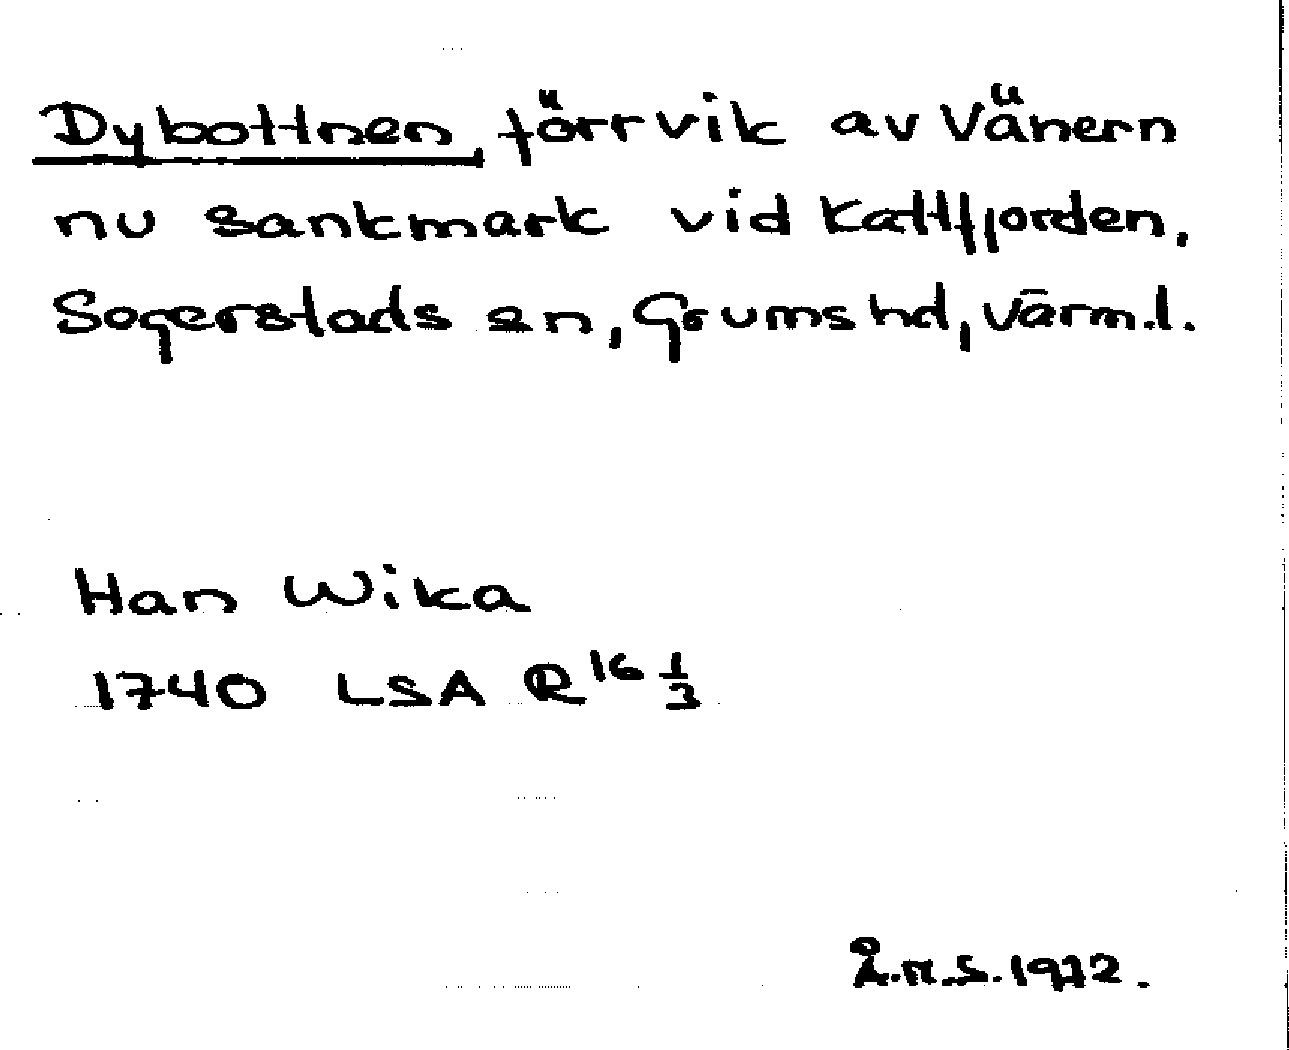 Dybottnen, förr vik av Vänern
nu sankmark vid Kattfjorden,
Segerstads sn, Grums hd, Värml.
Han Wika
1740 LSA R16 1/3
Å.H.S. 1972.